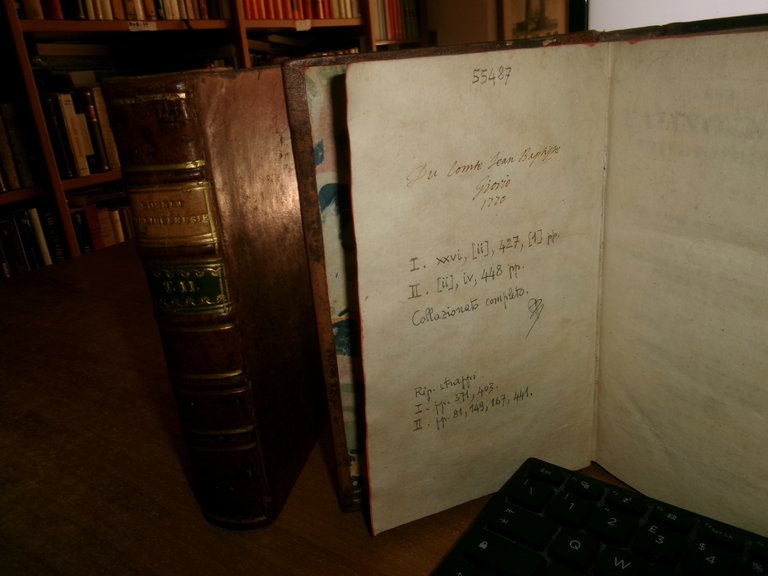 55487
Du Comte Jean Baptiste
Giovio
1770
I. xxvi, [ii], 427, [1] pp.
II. [ii], iv, 448 pp.
Collazionato completo.
Rip. strappi.
I. pp. 371, 403.
II. pp. 81, 149, 167, 441.
T. II.
1
2
£
3
$
4
%
Q
W